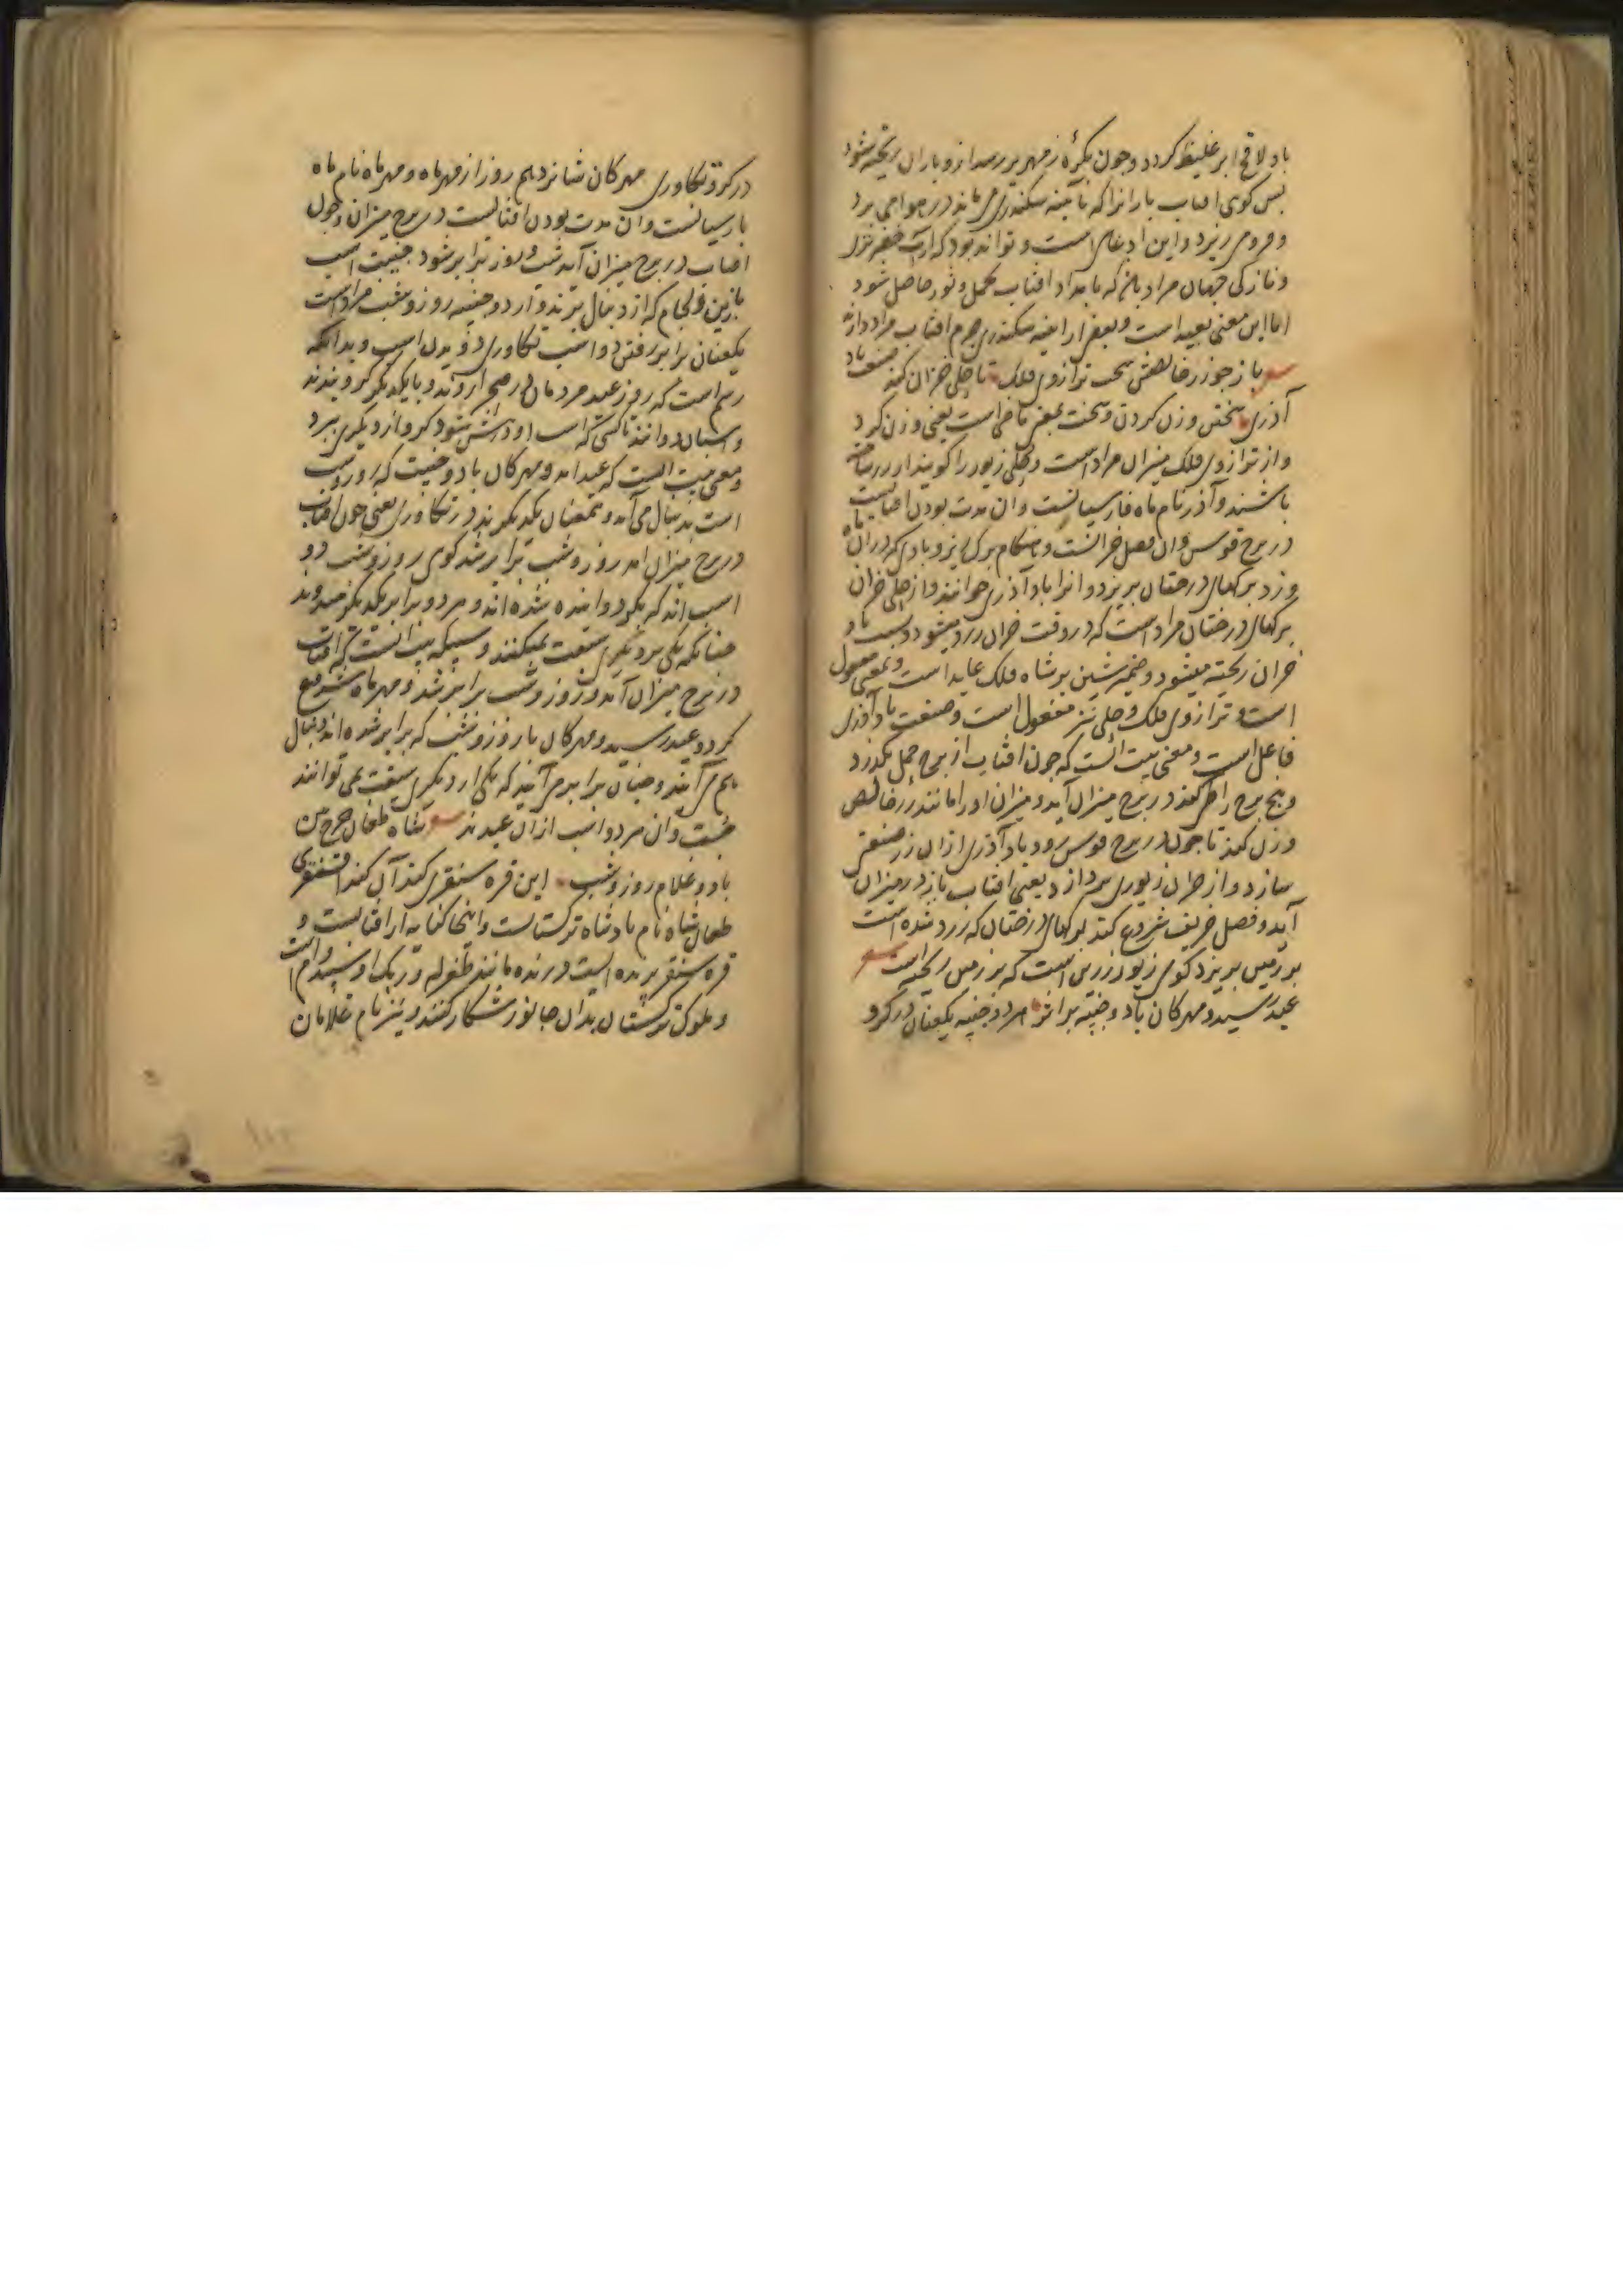 باد لاقح ابر غلیظ کردد و چون بکرۀ زمهریر رسد ازو باران ریخته شود
بس کوی افتاب بارانرا که بآیینه سکندری می ماند در هوا می برد
و فرو می ریزد و این ادعای است و تواند بود که از آب خضر
و تازکی جهان مراد باشد که بامداد افتاب بحمل و ثور حاصل شود
اما این معنی بعید است و بعضی از آینه سکندری جرم افتاب مراد دارند
باز چو زر خالصش سخت ترازوی فلک تا حلی خزان کند صنعت باد
آذری سختن وزن کردن و سخت بمعنی ماضی است یعنی وزن کرد
و از ترازوی فلک میزان مراد است و حلی زیور را کویند از زر ساخته
باشند و آذر نام ماه فارسیانست و ان مدت بودن افتابست
در برج قوس و ان فصل خزانست و هنکام برک ریز و بادی که دران ماه
وزد برکهای درختان بریزد و انرا باد آذری خوانند و از حلی خزان
برکهای درختان مراد است که در وقت خزان زرد میشود و بسبب باد
خزان ریخته میشود و ضمیر شین بر شاه فلک عاید است و بمعنی مفعول
است و ترازوی فلک و حلی نیز مفعول است و صنعت باد آذری
فاعل است و معنی بیت انست که چون افتاب از برج حمل بگذرد
و پنج برج را طی کند در برج میزان آید و میزان او را مانند زر خالص
وزن کند تا چون در برج قوس رود باد آذری ازان زر صنعتی
سازد و از خزان زیوری پردازد یعنی افتاب باز در میزان
آید و فصل خریف شروع کند برکهای درختان که زرد شده است
بر زمین بریزد کوی زیور زرین است که بر زمین ریخته است
عید رسید و مهرکان باد و جنیبه بر اثر هر دو جنیبه یکعنان در کرو
در کرو تکاوری مهرکان شانزدهم روز از مهر ماه و مهر ماه نام ماه
بارسیانست و ان مدت بودن افتابست در برج میزان و چون
افتاب در برج میزان آید شب و روز برابر شود جنیبت اسب
بازین و لجام که از دنبال برند و از دو جنیبه روز و شب مراد است
یکعنان برابر رفتن دو اسب تکاوری دویدن اسب و بدانکه
رسم است که روز عید مردمان در صحرا روند و با یکدیکر کرو بندند
و اسبان دوانند تا کسی که اسب او در پیش شود کرو از دیکری ببرد
و معنی بیت انست که عید امد و مهرکان باد و جنیبت که روز و شب
است بدنبال می آید و همعنان یکدیکرند در تکاوری یعنی چون افتاب
در برج میزان امد روز و شب برابر شد کوی روز و شب دو
اسب اند که بکرو دوانیده شده اند و هر دو برابر یکدیکر میدوند
چنانکه یکی بر دیکری سبقت نمیکنند و سبکه بیت انست که افتاب
در برج میزان آمد و روز و شب برابر شد و مهر ماه شروع
کرد و عید رسید و مهرکان با روز و شب که برابر شده اند دنبال
هم می آیند و چنان برابر می آیند که یکی از دیکری سبقت نمی توانند
جست و ان هر دو اسب ازان عیدند شاه طغان چرخ بین
باد و غلام روز و شب این قره سنقری کند آن کند اقسنقری
طغان شاه نام بادشاه ترکستانست و اینجا کنایه از افتابست و
قره سنقر پرنده ایست درنده مانند طغرل و رنک او سپید فام است
و ملوک ترکستان بدان جانور شکار کنند و نیز نام غلامان